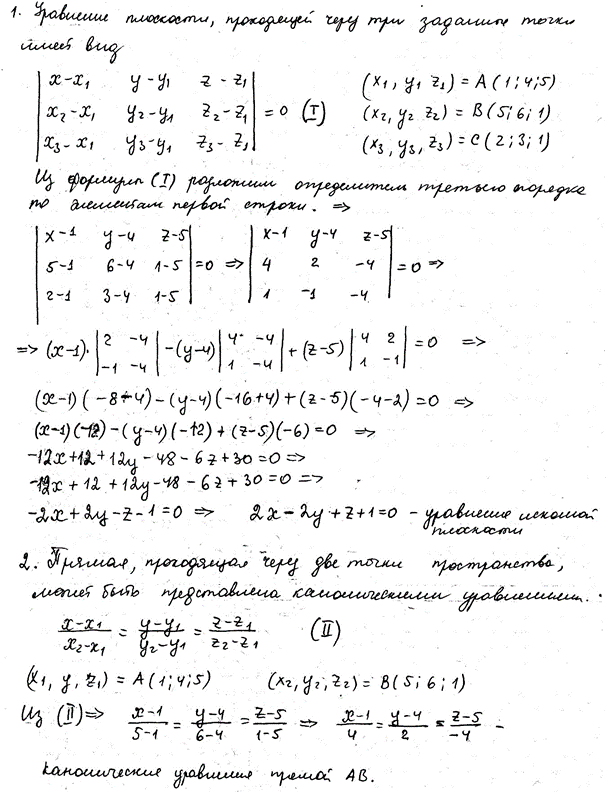 1. Уравнение плоскости, проходящей через три заданные точки
имеет вид
| x-x₁ y-y₁ z-z₁ |
| x₂-x₁ y₂-y₁ z₂-z₁ | = 0 (I)
| x₃-x₁ y₃-y₁ z₃-z₁ |
(x₁, y₁ z₁) = A(1;4;5)
(x₂, y₂ z₂) = B(5;6;1)
(x₃, y₃, z₃) = C(2;3;1)
Из формулы (I) разложим определитель третьего порядка
по элементам первой строки. ⇒
| x-1 y-4 z-5 |
| 5-1 6-4 1-5 | = 0 ⇒
| 2-1 3-4 1-5 |
| x-1 y-4 z-5 |
| 4 2 -4 | = 0 ⇒
| 1 -1 -4 |
⇒ (x-1)· | 2 -4 ; -1 -4 | -(y-4) | 4 -4 ; 1 -4 | + (z-5) | 4 2 ; 1 -1 | = 0 ⇒
(x-1)(-8-4) - (y-4)(-16+4) + (z-5)(-4-2) = 0 ⇒
(x-1)(-12) - (y-4)(-12) + (z-5)(-6) = 0 ⇒
-12x+12+12y-48-6z+30=0 ⇒
-12x+12+12y-48-6z+30=0 ⇒
-2x+2y-z-1=0 ⇒ 2x-2y+z+1=0 - уравнение искомой
плоскости
2. Прямая, проходящая через две точки пространства,
может быть представлена каноническими уравнением.
(x-x₁)/(x₂-x₁) = (y-y₁)/(y₂-y₁) = (z-z₁)/(z₂-z₁) (II)
(x₁, y, z₁) = A(1;4;5) (x₂, y₂, z₂) = B(5;6;1)
Из (II) ⇒ (x-1)/(5-1) = (y-4)/(6-4) = (z-5)/(1-5) ⇒ (x-1)/4 = (y-4)/2 = (z-5)/-4 -
канонические уравнения прямой AB.